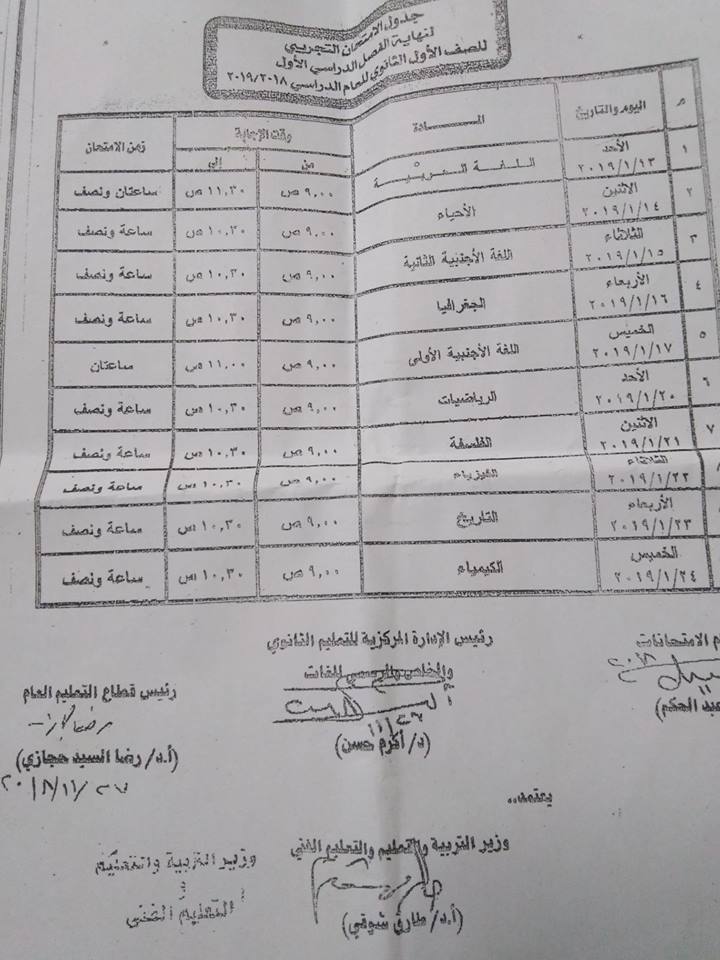 جدول الامتحان التجريبي
لنهاية الفصل الدراسي الأول
للصف الأول الثانوي للعام الدراسي ٢٠١٩/٢٠١٨
م اليوم والتاريخ المـــــادة وقت الإجابة زمن الامتحان
من إلى
١ الأحد ٢٠١٩/١/١٣ اللغة العربية ٩,٠٠ ص ١١,٣٠ ص ساعتان ونصف
٢ الاثنين ٢٠١٩/١/١٤ الأحياء ٩,٠٠ ص ١٠,٣٠ ص ساعة ونصف
٣ الثلاثاء ٢٠١٩/١/١٥ اللغة الأجنبية الثانية ٩,٠٠ ص ١٠,٣٠ ص ساعة ونصف
٤ الأربعاء ٢٠١٩/١/١٦ الجغرافيا ٩,٠٠ ص ١٠,٣٠ ص ساعة ونصف
٥ الخميس ٢٠١٩/١/١٧ اللغة الأجنبية الأولى ٩,٠٠ ص ١١,٠٠ ص ساعتان
٦ الأحد ٢٠١٩/١/٢٠ الرياضيات ٩,٠٠ ص ١٠,٣٠ ص ساعة ونصف
٧ الاثنين ٢٠١٩/١/٢١ الفلسفة ٩,٠٠ ص ١٠,٣٠ ص ساعة ونصف
٨ الثلاثاء ٢٠١٩/١/٢٢ الفيزياء ٩,٠٠ ص ١٠,٣٠ ص ساعة ونصف
الأربعاء ٢٠١٩/١/٢٣ التاريخ ٩,٠٠ ص ١٠,٣٠ ص ساعة ونصف
الخميس ٢٠١٩/١/٢٤ الكيمياء ٩,٠٠ ص ١٠,٣٠ ص ساعة ونصف
م الامتحانات
٢٠١٨
عبد الحكم)
رئيس الإدارة المركزية للتعليم الثانوي
والخاص والرسمي للغات
١١/٢٦
(د/ أكرم حسن)
رئيس قطاع التعليم العام
(أ.د/ رضا السيد حجازي)
٢٠١٨/١١/٢٧
يعتمد..
وزير التربية والتعليم والتعليم الفني
(أ.د/ طارق شوقي)
وزير التربية والتعليم
و
التعليم الفني